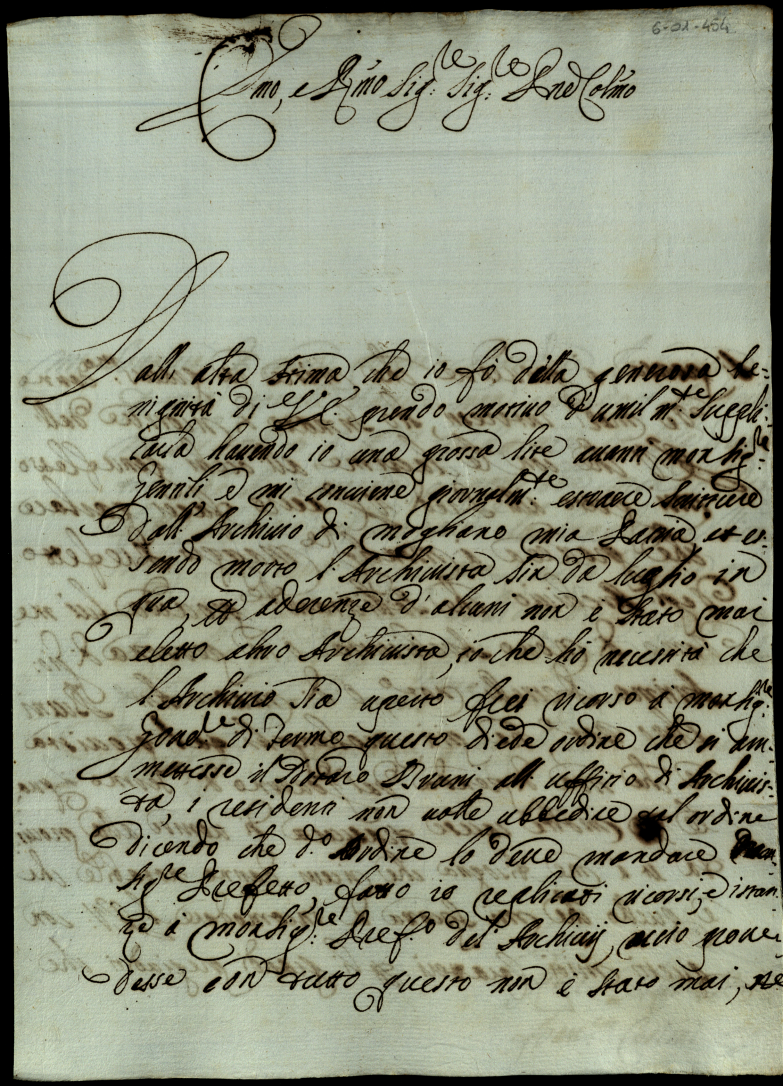 6-01-404
Emo, e Rmo Sig.re Sig.re Pne Colmo
Dall' alta stima che io fò della generosa be=
nignità di V.E. prendo motivo d'umilm.te suppli=
carla havendo io una grossa lite avanti monsig.re
Gentili e mi conviene giornalm.te estraere scritture
dall' Archivio di mogliano mia Patria et es=
sendo morto l'Archivista sin da luglio in
qua, et aderenze d'alcuni non è stato mai
eletto altro Archivista, io che hò necessità che
l'Archivio sia aperto feci ricorso a monsig.re
Gov.re di Fermo questo diede ordine che si am=
mettesse il Notaro Bruni all' uffitio di Archivis=
ta, i residenti non volle ubbedire al ordine
dicendo che d.o ordine lo deve mandare Mon=
sig.re Prefetto, fatto io replicati ricorsi, e istan=
ze à monsig.re Pref.o del' Archivij, acciò prove=
desse con tutto questo non è stato mai, ne